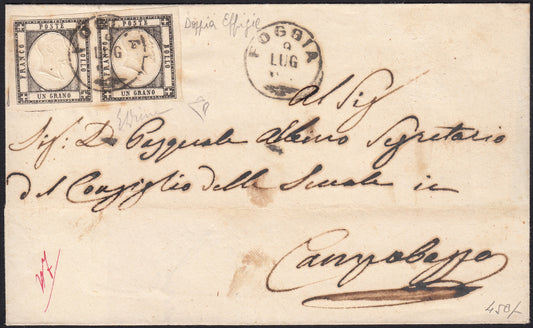 FRANCO POSTE BOLLO UN GRANO
FRANCO POSTE BOLLO UN GRANO
FOGGIA
LUG
Doppia Effigie
FOGGIA
9
LUG
Al Sig
Sig: D. Pasquale Albino Segretario
del Consiglio delle Scuole in
Campobasso
450/-